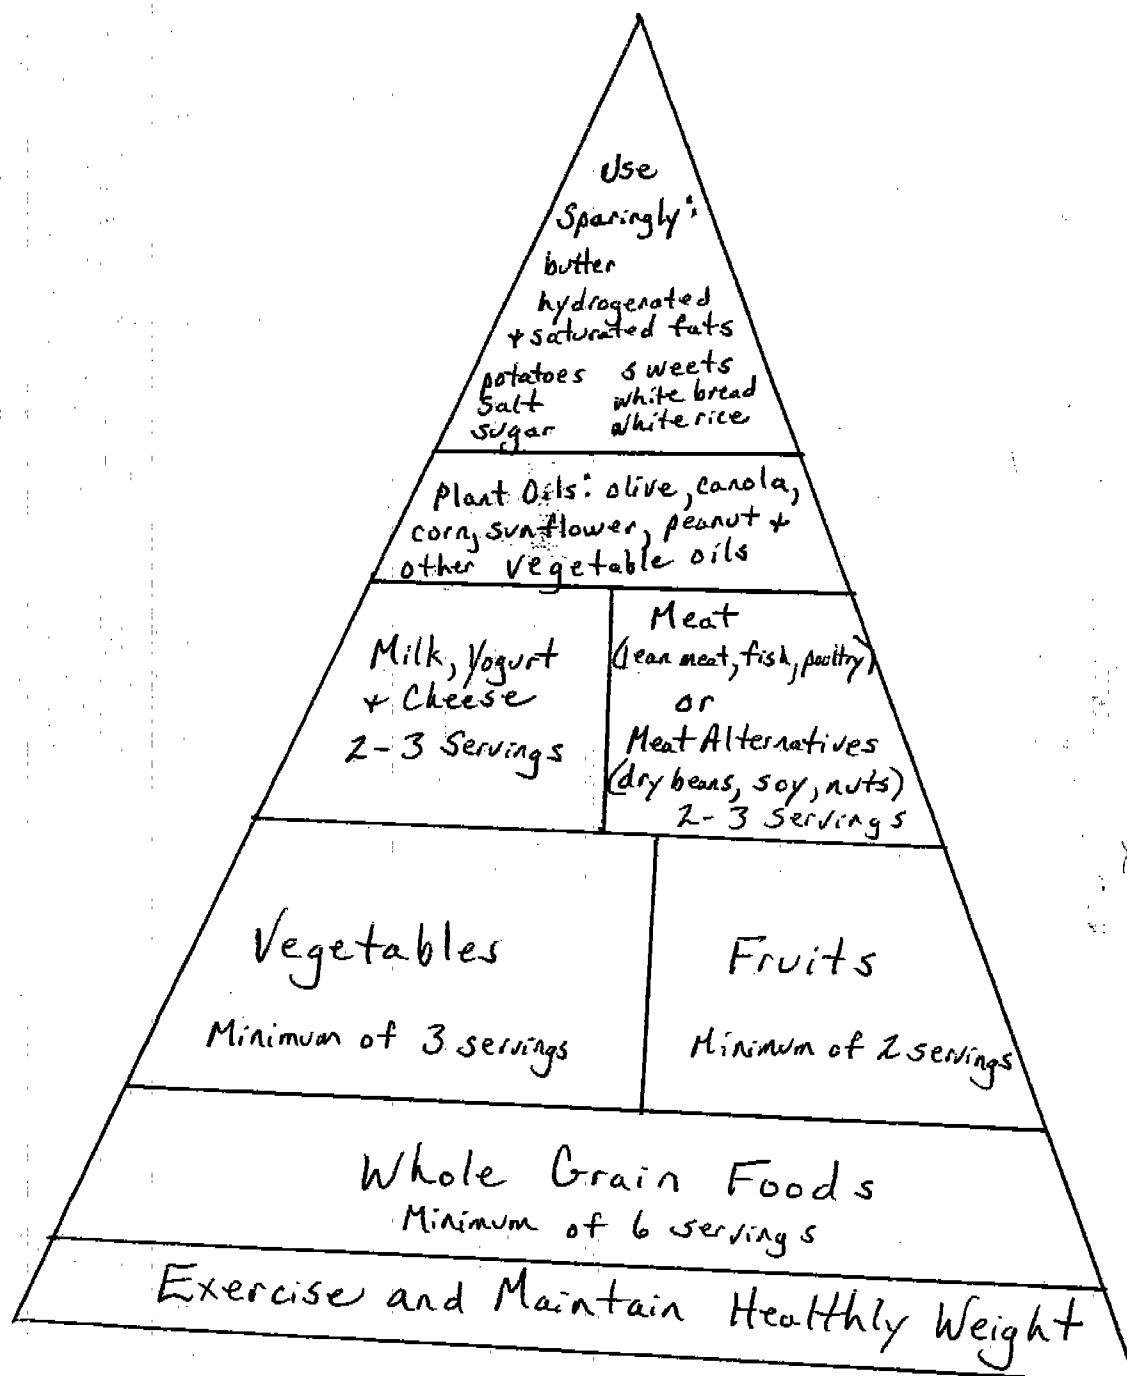 Use
Sparingly:
butter
hydrogenated
+ saturated fats
potatoes sweets
Salt white bread
sugar white rice
Plant Oils: olive, canola,
corn, sunflower, peanut +
other vegetable oils
Milk, Yogurt
+ Cheese
2-3 Servings
Meat
(lean meat, fish, poultry)
or
Meat Alternatives
(dry beans, soy, nuts)
2-3 Servings
Vegetables
Minimum of 3 servings
Fruits
Minimum of 2 servings
Whole Grain Foods
Minimum of 6 servings
Exercise and Maintain Healthly Weight